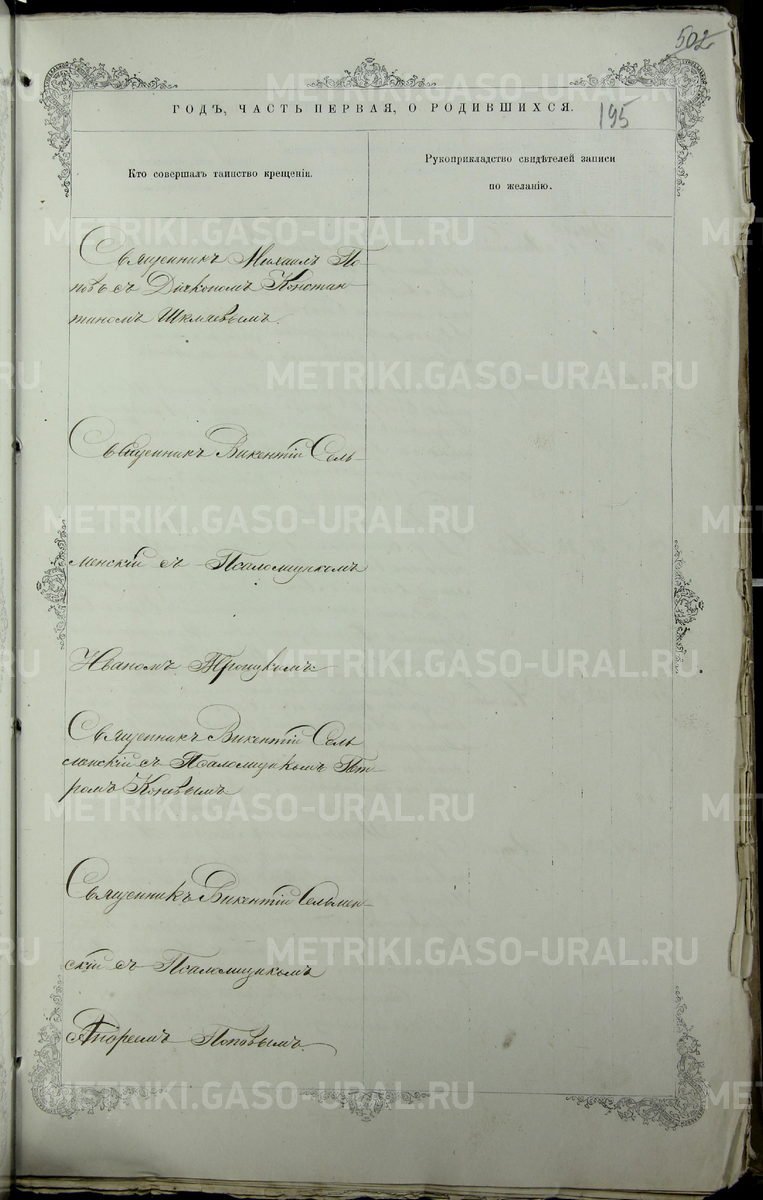 502
ГОДЪ, ЧАСТЬ ПЕРВАЯ, О РОДИВШИХСЯ.
195
Кто совершалъ таинство крещенія.
Рукоприкладство свидѣтелей записи
по желанію.
Священникъ Михаилъ По-
повъ съ Діакономъ Констан-
тиномъ Шкляевымъ.
Священникъ Викентій Сель-
менскій съ Псаломщикомъ
Иваномъ Троицкимъ
Священникъ Викентій Сель-
менскій съ Псаломщикомъ Пет-
ромъ
Священникъ Викентій Сельмен-
скій съ Псаломщикомъ
Андреемъ Поповымъ.
METRIKI.GASO-URAL.RU